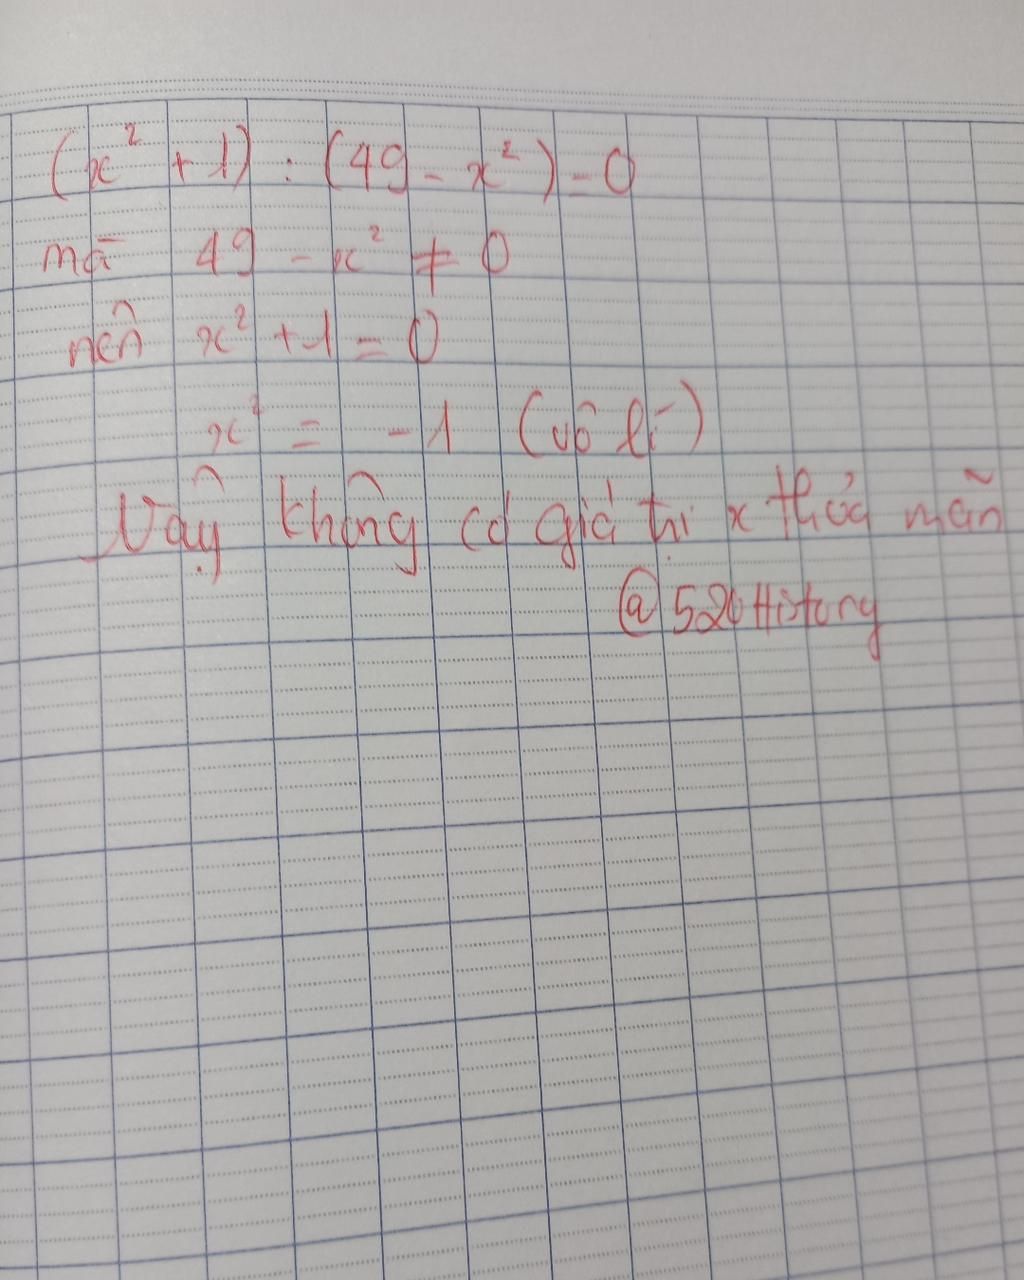 (x² + 1) : (49 - x²) = 0
mà 49 - x² ≠ 0
nên x² + 1 = 0
x² = -1 (vô lí)
Vậy không có giá trị x thỏa mãn
@520History